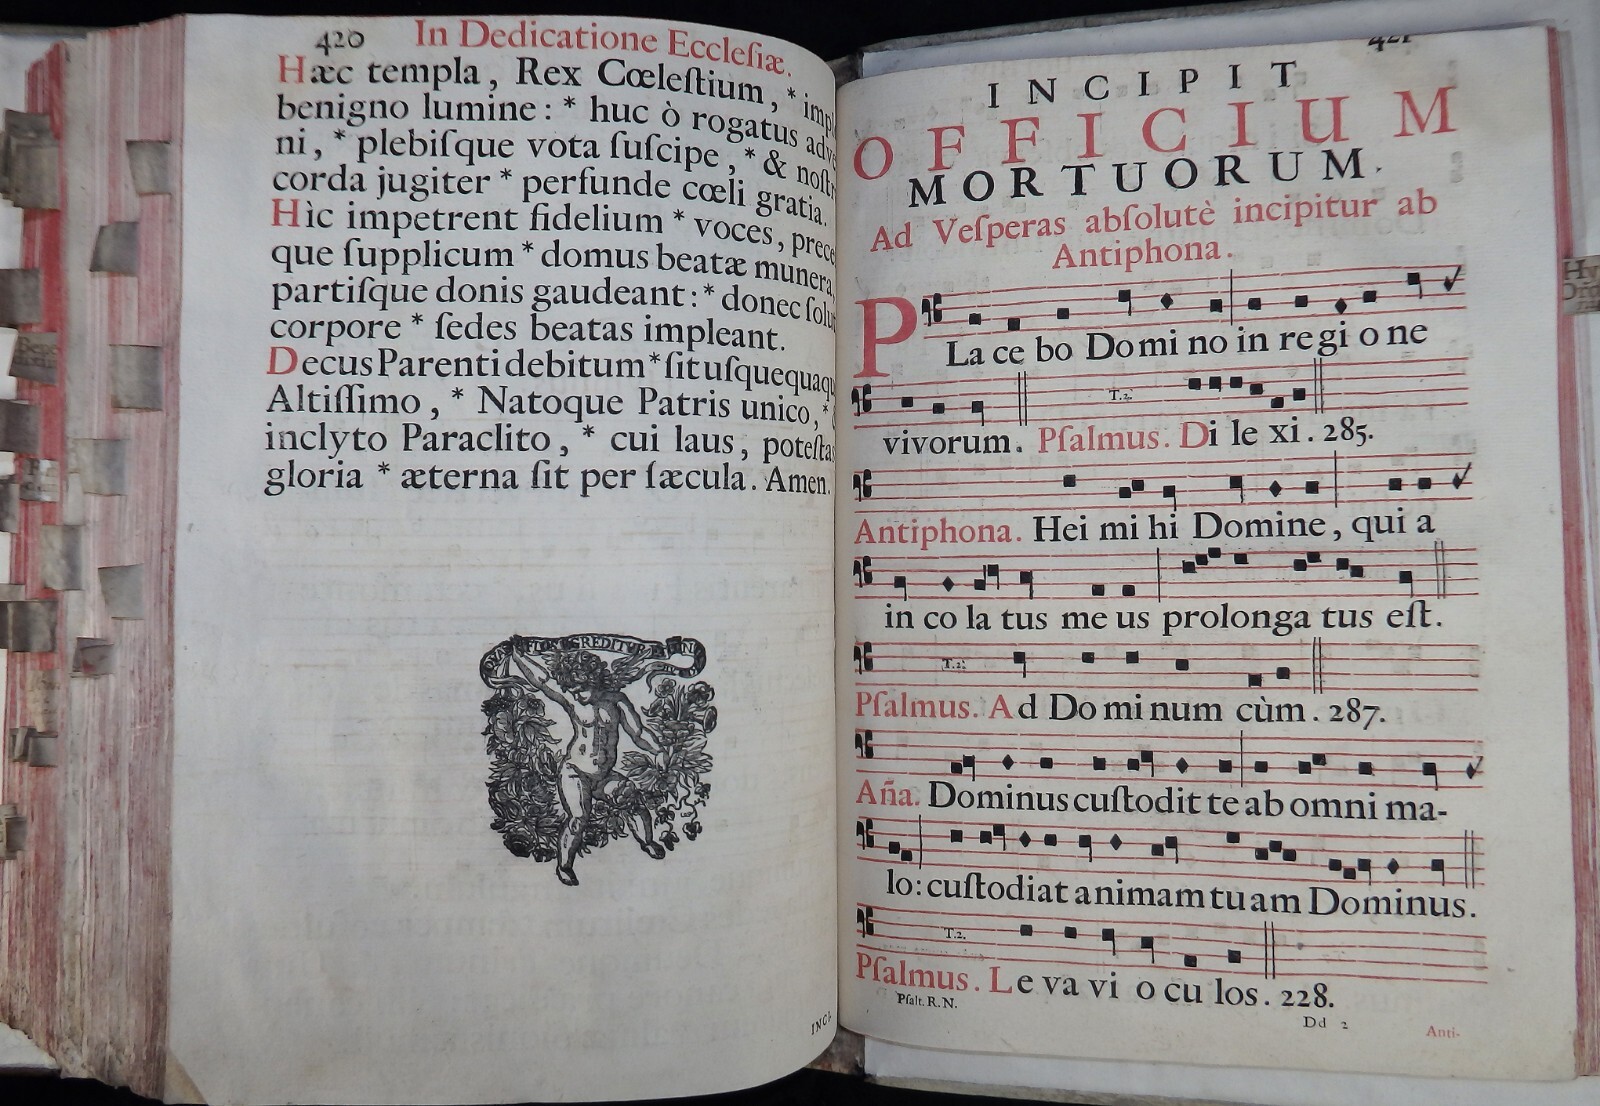 420 In Dedicatione Eccleſiæ.
Hæc templa, Rex Cœleſtium, * impl
benigno lumine: * huc ò rogatus adve
ni, * plebiſque vota ſuſcipe, * & noſtr
corda jugiter * perfunde cœli gratia.
Hìc impetrent fidelium * voces, prece
que ſupplicum * domus beatæ munera,
partiſque donis gaudeant: * donec ſolu
corpore * ſedes beatas impleant.
Decus Parenti debitum * ſit uſquequaqu
Altiſſimo, * Natoque Patris unico, *
inclyto Paraclito, * cui laus, poteſtas
gloria * æterna ſit per ſæcula. Amen.
INCI-
421
INCIPIT
OFFICIUM
MORTUORUM.
Ad Veſperas abſolutè incipitur ab
Antiphona.
PLa ce bo Domi no in re gi o ne
T.2.
vivorum. Pſalmus. Di le xi. 285.
Antiphona. Hei mi hi Domine, qui a
in co la tus me us prolonga tus eſt.
T.2.
Pſalmus. Ad Do mi num cùm. 287.
Aña. Dominus cuſtodit te ab omni ma-
lo: cuſtodiat animam tu am Dominus.
T.2.
Pſalmus. Le va vi o cu los. 228.
Pſalt. R. N.
Dd 2 Anti-